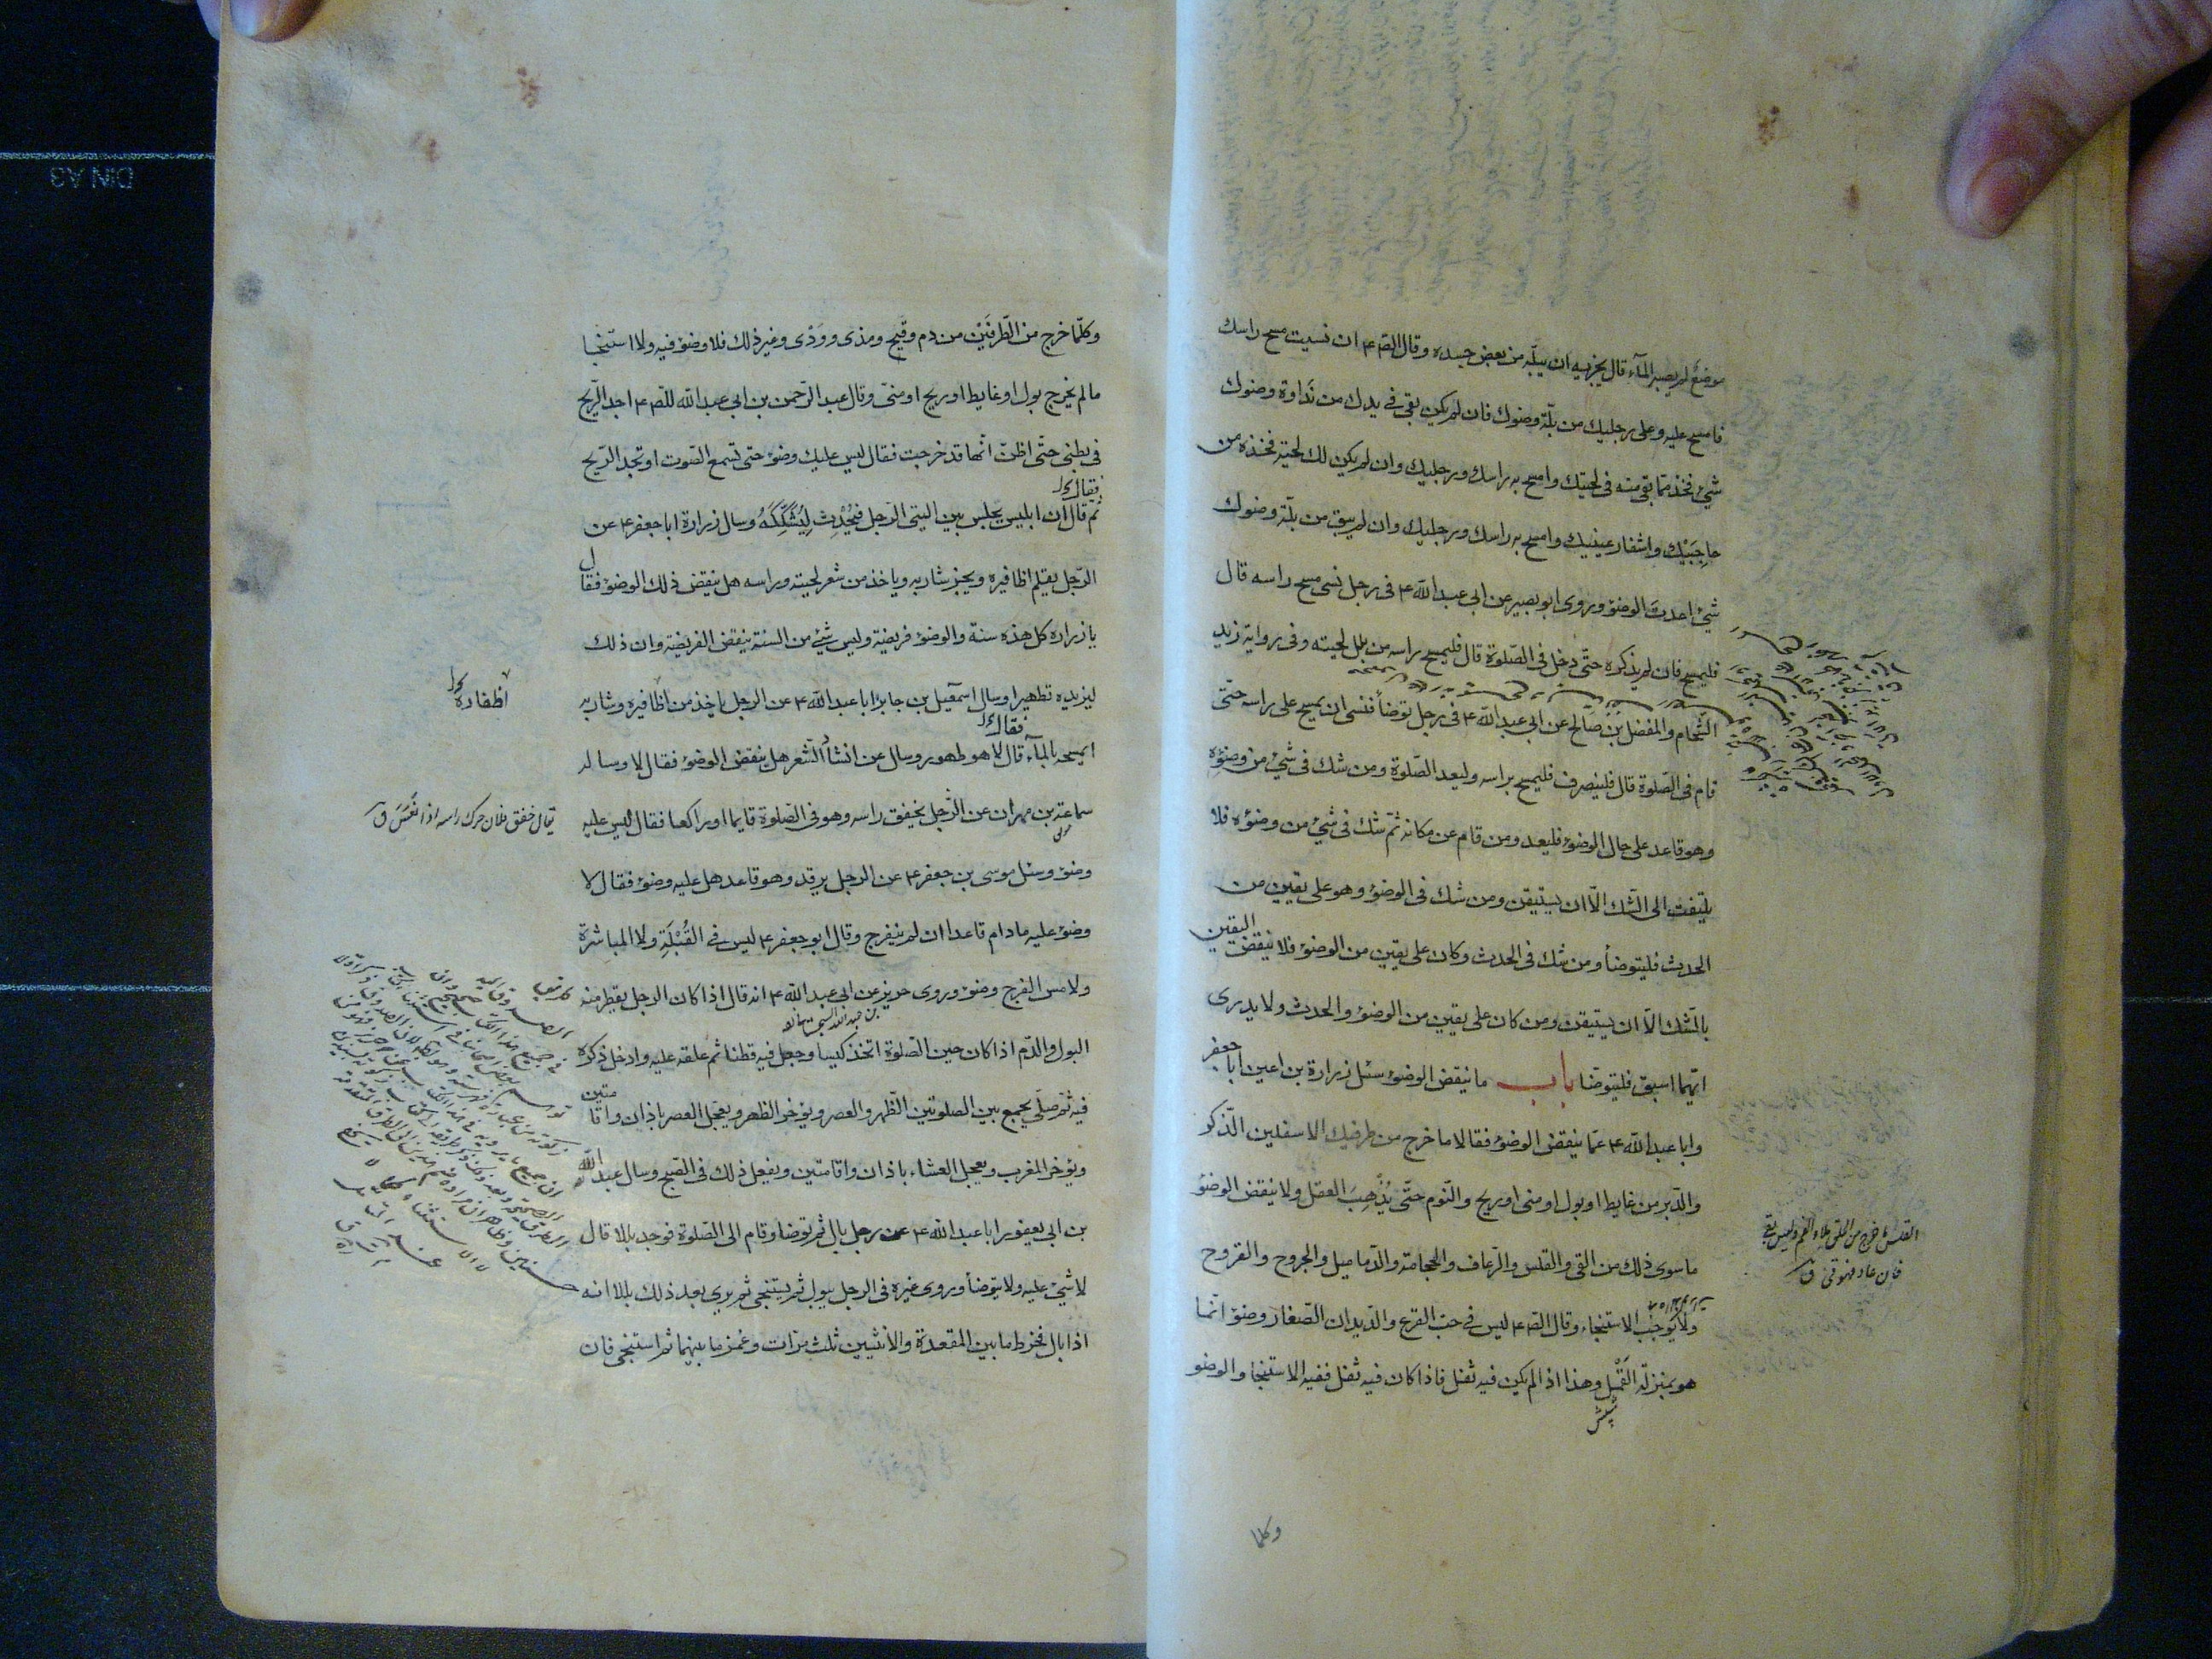 موضع لم يصبه المآء قال يجزيه ان يبلّه من بعض جسده وقال الصّ ۴ ان نسيت مسح راسك
فامسح عليه وعلى رجليك من بلّة وضوئك فان لم يكن بقى فى يدك من نداوة وضوئك
شئ فخذ ممّا بقى منه فى لحيتك وامسح به راسك ورجليك وان لم يكن لك لحية فخذه من
حاجبيك واشفار عينيك وامسح به راسك ورجليك وان لم يبق من بلّة وضوئك
شئ اعدت الوضوء وروى ابو بصير عن ابى عبد اللّه ۴ فى رجل نسى مسح راسه قال
فليمسح فان لم يذكره حتّى دخل فى الصّلوة قال فليمسح راسه من بلل لحيته وفى رواية زيد
الشّحام والمفضل بن صالح عن ابى عبد اللّه ۴ فى رجل توضأ فنسى ان يمسح على راسه حتّى
قام فى الصّلوة قال فلينصرف فليمسح براسه وليعد الصّلوة ومن شك فى شئ من وضوئه
وهو قاعد على حال الوضوء فليعد ومن قام عن مكانه ثمّ شك فى شئ من وضوئه فلا
يلتفت الى الشّك الّا ان يستيقن ومن شك فى الوضوء وهو على يقين من
الحدث فليتوضأ ومن شك فى الحدث وكان على يقين من الوضوء فلا ينقض اليقين
بالشك الّا ان يستيقن ومن كان على يقين من الوضوء والحدث ولا يدرى
ايّهما اسبق فليتوضّا باب ما ينقض الوضوء سئل زرارة بن اعين ابا جعفر
وابا عبد اللّه ۴ عمّا ينقض الوضوء فقالا ما خرج من طرفيك الاسفلين الذّكر
والدّبر من غايط او بول او منى او ريح والنّوم حتّى يُذْهِبَ العقل ولا ينقض الوضوء
ما سوى ذلك من القئ والقلس والرّعاف والحجامة والدّماميل والجروح والقروح
ولا يُوجب الاستنجاء وقال الصّ ۴ ليس فى حبّ القرع والدّيدان الصّغار وضوء انّما
هو بمنزلة القَمْل وهذا اذا لم يكن فيه ثفل فاذا كان فيه ثفل ففيه الاستنجا والوضو
شپش
القلس ما خرج من الحلق ملاء الفم وليس بقئ
فان عاد فهو قئ ق
وكلما
وكلّما خرج من الطّرفَيْن من دم وقيح ومذى ووَدْى وغير ذلك فلا وضوء فيه ولا استنجا
ما لم يخرج بول او غايط او ريح او منىّ وقال عبد الرّحمن بن ابى عبد اللّه للصّ ۴ اجد الرّيح
فى بطنى حتّى اظنّ انّها قد خرجت فقال ليس عليك وضوء حتى تسمع الصّوت او تجد الرّيح
فقال
ثم قال ان ابليس يجلس بين اليتى الرّجل فيُحْدِث لِيُشَكِّكَهُ وسال زرارة ابا جعفر ۴ عن
الرّجل يقلم اظافيره ويجز شاربه وياخذ من شعر لحيته وراسه هل ينقض ذلك الوضوء فقال
يا زراره كل هذه سنة والوضوء فريضة وليس شئ من السنة ينقض الفريضة وان ذلك
ليزيده تطهيرا وسال اسمعيل بن جابر ابا عبد اللّه ۴ عن الرجل ياخذ من اظافيره وشاربه
اظفاره
فقال
ايمسحه بالمآء قال لا هو طهور وسال عن انشاد الشّعر هل ينقض الوضوء فقال لا وساله
سماعة بن مهران عن الرّجل يخفق راسه وهو فى الصّلوة قايما او راكعا فقال ليس عليه
يقال خفق فلان حرك راسه اذا نَعَسَ ق
وضوء وسئل موسى بن جعفر ۴ عن الرجل يرقد وهو قاعد هل عليه وضوء فقال لا
وضوء عليه ما دام قاعدا ان لم ينفرج وقال ابو جعفر ۴ ليس فى القُبْلَةِ ولا المباشرة
ولا مس الفرج وضوء وروى حريز عن ابى عبد اللّه ۴ انه قال اذا كان الرجل يقطر منه
البول والدّم اذا كان حين الصّلوة اتخذ كيسا وجعل فيه قطنا ثم علقه عليه وادخل ذكره
فيه ثمّ صلّى يجمع بين الصلوتين الظّهر والعصر ويؤخر الظهر ويعجّل العصر باذان واقامتين
ويؤخر المغرب ويعجل العشاء باذان واقامتين ويفعل ذلك فى الصّبح وسال عبد اللّه
بن ابى يعفور ابا عبد اللّه ۴ عن رجل بال ثم توضا وقام الى الصّلوة فوجد بللا قال
لا شئ عليه ولا يتوضأ وروى غيره فى الرجل يبول ثم يستنجى ثم يرى بعد ذلك بللا انه
اذا بال فخرط ما بين المقعدة والانثيين ثلث مرّات وغمز ما بينهما ثم استنجى فان